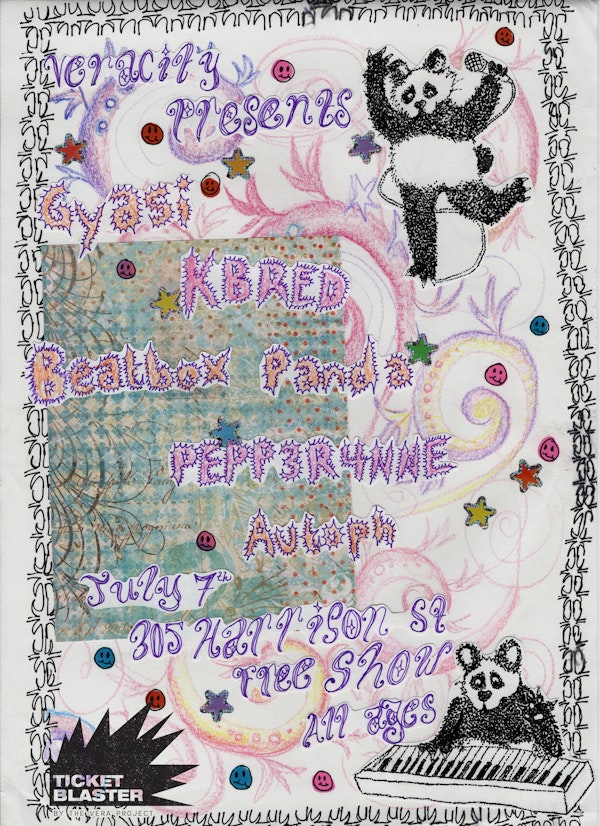 Veracity
Presents
Gyasi
KBRED
Beatbox Panda
PEPP3R4NNE
Autoph
July 7th
305 Harrison St
Free Show
All Ages
TICKET
BLASTER
BY THE VERA PROJECT